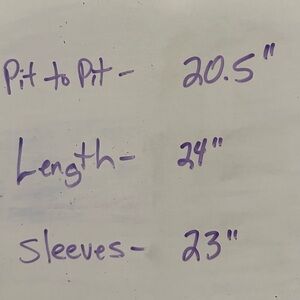 Pit to Pit - 20.5"
Length - 24"
Sleeves - 23"